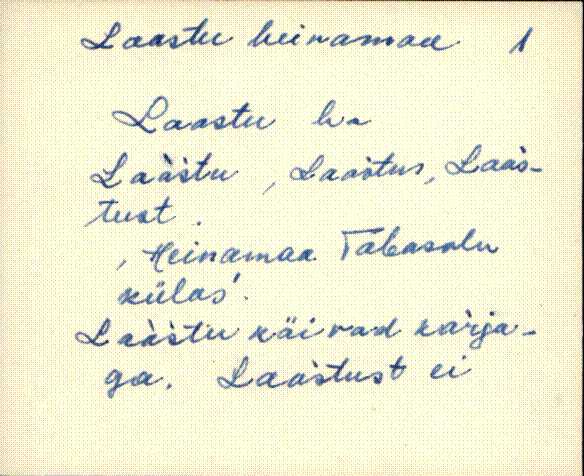 Laastu heinamaa 1
Laastu h-
Laàs̀tu, Laas̀tus, Laas̀-
tust.
‚Heinamaa Tabasalu
külas'.
Laàs̀tu käivad kàrja-
ga. Laas̀tust ei